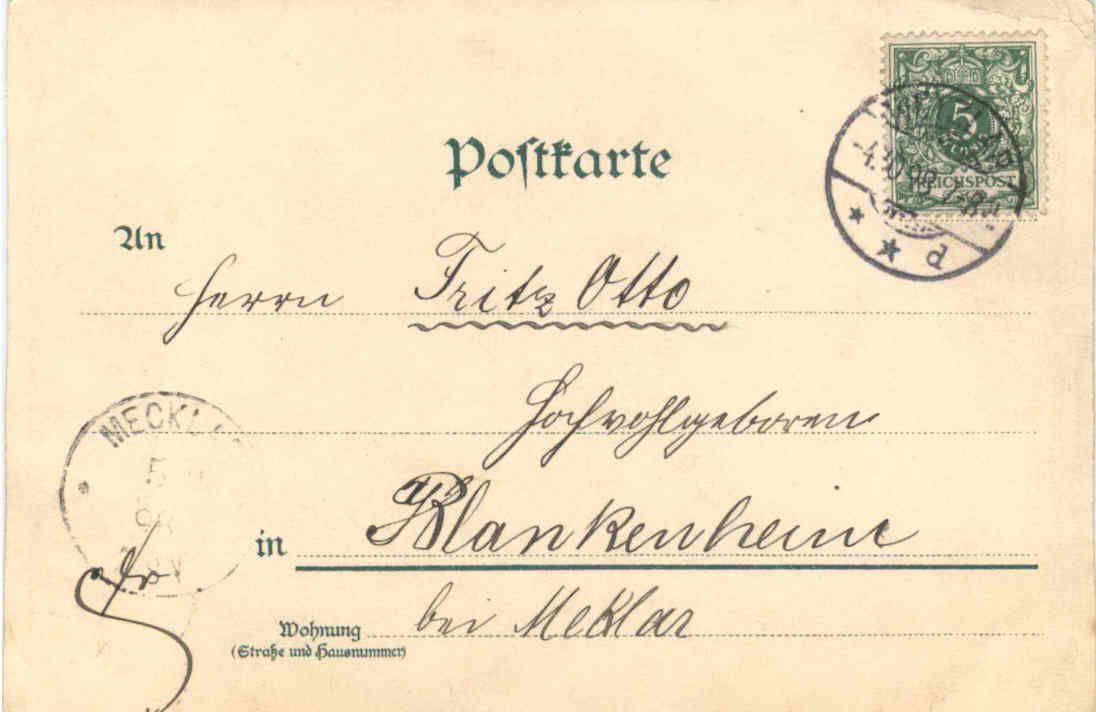 Postkarte
5
REICHSPOST
-4.10.98 7-8N
* * d
An
Herrn Fritz Otto
Hochwohlgeboren
MECKL
5
98
in Blankenheim
Wohnung bei Meklar
(Straße und Hausnummer)